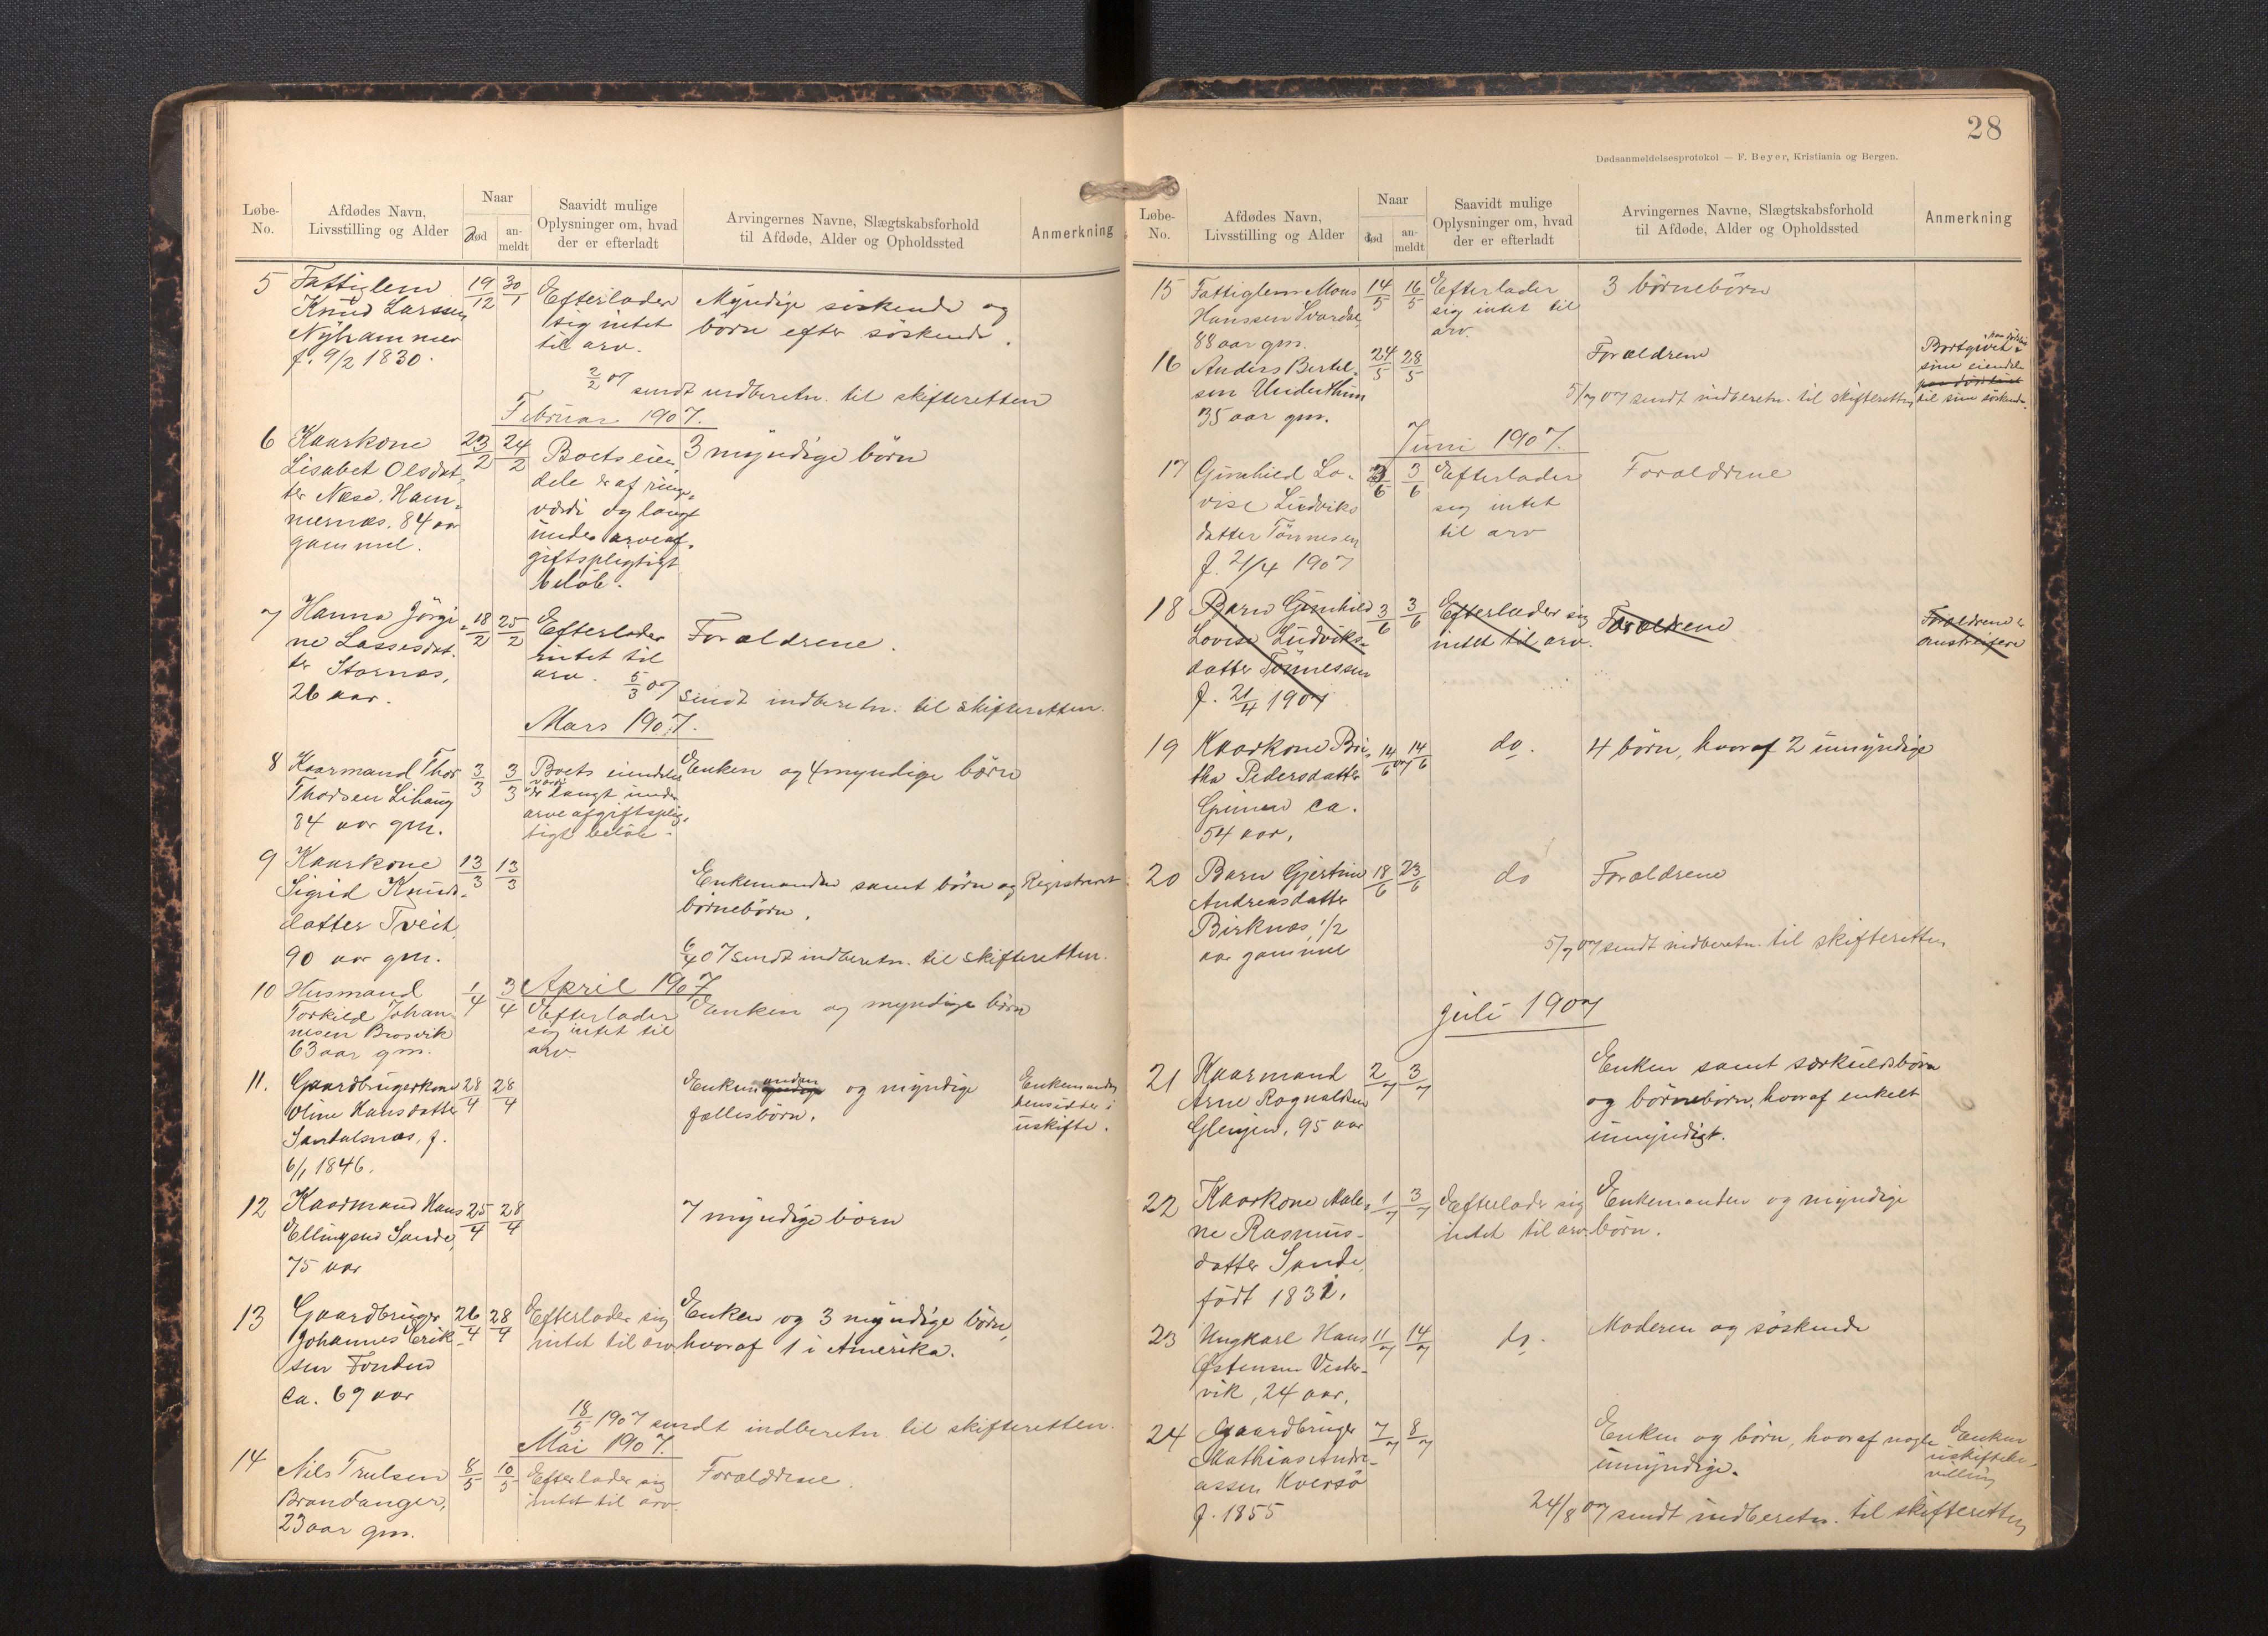 28
Dødsanmeldelsesprotokol — F. Beyer, Kristiania og Bergen.
Løbe-No.
Afdødes Navn, Livsstilling og Alder
Naar
død
an-meldt
Saavidt mulige Oplysninger om, hvad der er efterladt
Arvingernes Navne, Slægtskabsforhold til Afdøde, Alder og Opholdssted
Anmerkning
5 Fattiglem 19/12 30/1 Efterlader Myndige söskende og
Knud Larssen sig intet börn efter söskende.
Nyhammer til arv.
f. 9/2 1830.
2/2 07 sendt indberetn. til skifteretten
Februar 1907.
6 Kaarkone 23/2 24/2 Boets eien- 3 myndige börn
Lisabet Olsdat- dele er af ringe
ter Nese, Ham- værdi og langt
mernæs, 84 aar under arveaf-
gammel. giftspligtigt
belöb.
7 Hanna Jörgi- 18/2 25/2 Efterlader Forældrene.
ne Lassesdat- intet til
ter Stornæs, arv.
26 aar.
5/3 07 sendt indberetn. til skifteretten.
Mars 1907.
8 Kaarmand Thor 3/3 3/3 Boets eiendeles Enken og 4 myndige börn
Thorsen Lihaug værdi er langt under
84 aar gm. arveafgiftsplig-
tigt belöb.
9 Kaarkone 13/3 13/3 Enkemanden samt börn og Registreret
Sigrid Knuds- börnebörn.
datter Tveit,
90 aar gm.
6/4 07 sendt indberetn. til skifteretten.
April 1907
10 Husmand 1/4 3/4 Efterlader Enken og myndige börn
Torkild Johan- sig intet til
nesen Brosvik arv.
63 aar gm.
11. Gaardbrugerkone 28/4 28/4 Enkemanden og myndige Enkemanden
Oline Hansdatter fællesbörn. hensidder i
Sandalsnæs, f. uskifte.
6/1 1846.
12 Kaarmand Hans 25/4 28/4 7 myndige börn
Ellingsen Sande,
75 aar
13 Gaardbruger 26/4 28/4 Efterlader sig Enken og 3 myndige börn,
Johannes Erik- intet til arv. hvoraf 1 i Amerika.
sen Fonden
ca. 69 aar
18/5 1907 sendt indberetn. til skifteretten.
Mai 1907.
14 Nils Trulsen 8/5 10/5 Efterlader sig Forældrene.
Brandanger, intet til arv.
23 aar gm.
Løbe-No.
Afdødes Navn, Livsstilling og Alder
Naar
død
an-meldt
Saavidt mulige Oplysninger om, hvad der er efterladt
Arvingernes Navne, Slægtskabsforhold til Afdøde, Alder og Opholdssted
Anmerkning
15 Fattiglem Mons 14/5 16/5 Efterlader 3 börnebörn
Hanssen Svardal, sig intet til
88 aar gm. arv.
16 Anders Bertel- 24/5 28/5 Forældrene Bortgivet
sen Underthun sine eiendele
35 aar gm. til sine söskende.
5/7 07 sendt indberetn. til skifteretten
Juni 1907.
17 Gunhild Lo- 3/6 Efterlader Forældrene
vise Ludviks sig intet
datter Tönnesen til arv
f. 21/4 1907
18 Barn Gunhild 3/6 3/6 Efterlader sig Forældrene Forældrene er
Lovise Ludviks- intet til arv.
datter Tönnessen
f. 21/4 1907
19 Kaarkone Bri- 14/6 07 14/6 do. 4 börn, hvoraf 2 umyndige
tha Pedersdatter
ca.
54 aar.
20 Barn Gjertine 18/6 23/6 do Forældrene
Andreasdatter
Birknæs, 1/2
aar gammel
5/7 07 sendt indberetn. til skifteretten
Juli 1907
21 Kaarmand 2/7 3/7 Enken samt særkuldsbörn
Arne Ragnaldsen og börnebörn, hvoraf enkelt
95 aar umyndigt.
22 Kaarkone Male- 1/7 3/7 Efterlader sig Enkemanden og myndige
ne Rasmus- intet til arv. börn.
datter Sande,
födt 1831.
23 Ungkarl Hans 11/7 14/7 do. Moderen og söskende
Østensen Vester-
vik, 24 aar.
24 Gaardbruger 7/7 8/7 Enken og börn, hvoraf nogle Enken
Mathias Andre- umyndige. uskiftebe-
assen Kversö villing
f. 1855
24/8 07 sendt indberetn. til skifteretten